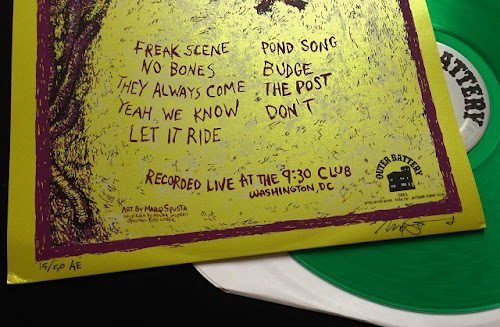 FREAK SCENE
NO BONES
THEY ALWAYS COME
YEAH WE KNOW
LET IT RIDE
POND SONG
BUDGE
THE POST
DON'T
RECORDED LIVE AT THE 9:30 CLUB
WASHINGTON, DC
ART BY MARQ SPUSTA
OUTER BATTERY
15/50 AE
BATTERY